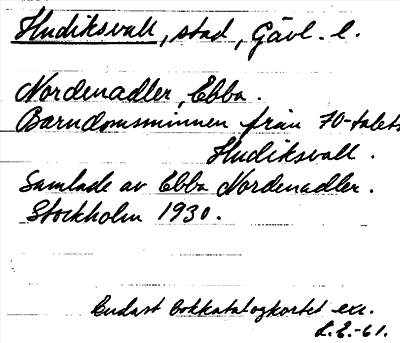 Hudiksvall, stad, Gävl. l.
Nordenadler, Ebba.
Barndomsminnen från 70-talets
Hudiksvall.
Samlade av Ebba Nordenadler.
Stockholm 1930.
Endast bokkatalogkortet exc.
L.E.-61.